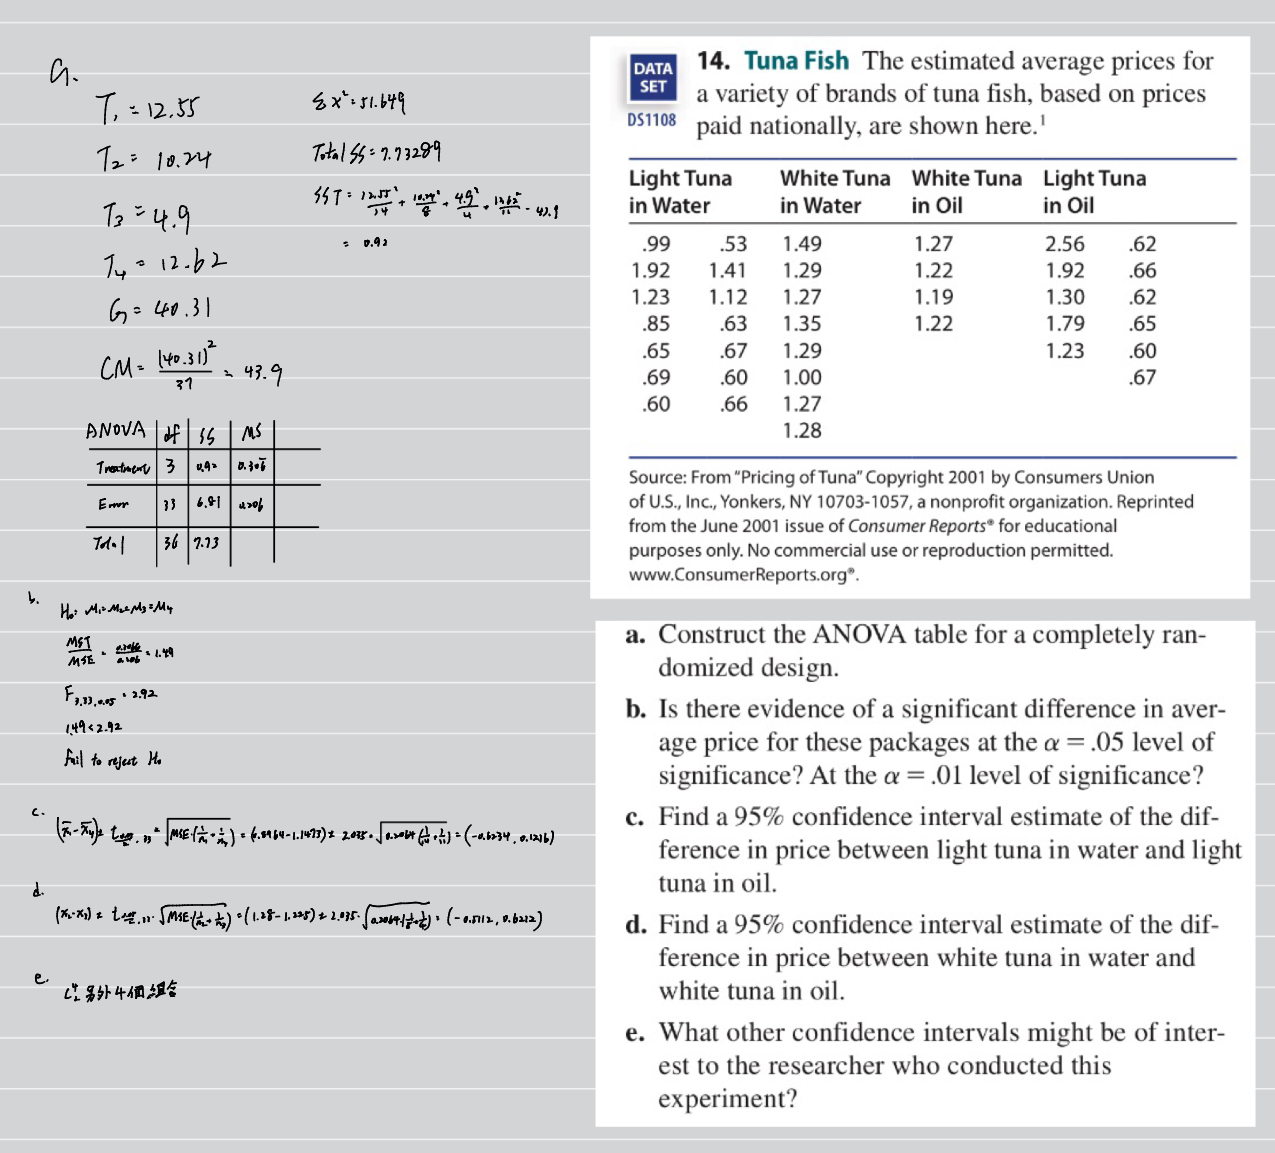 a.
T₁ = 12.55
T₂ = 10.24
T₃ = 4.9
T₄ = 12.62
G = 40.31
CM = (40.31)² / 37 = 43.9
Σx² = 51.649
Total SS = 7.73289
SST = 12.55²/14 + 10.24²/8 + 4.9²/4 + 12.62²/11 - 43.9
= 0.92
ANOVA df SS MS
Treatment 3 0.92 0.306
Error 33 6.81 0.206
Total 36 7.73
b.
H₀: M₁=M₂=M₃=M₄
MST/MSE = 0.3066/0.206 = 1.49
F₃,₃₃,₀.₀₅ = 2.92
1.49 < 2.92
fail to reject H₀
c.
d.
e.
C⁴₂ 另外4個組合
DATA SET
DS1108
14. Tuna Fish The estimated average prices for
a variety of brands of tuna fish, based on prices
paid nationally, are shown here.¹
Light Tuna White Tuna White Tuna Light Tuna
in Water in Water in Oil in Oil
.99 .53 1.49 1.27 2.56 .62
1.92 1.41 1.29 1.22 1.92 .66
1.23 1.12 1.27 1.19 1.30 .62
.85 .63 1.35 1.22 1.79 .65
.65 .67 1.29 1.23 .60
.69 .60 1.00 .67
.60 .66 1.27
1.28
Source: From "Pricing of Tuna" Copyright 2001 by Consumers Union
of U.S., Inc., Yonkers, NY 10703-1057, a nonprofit organization. Reprinted
from the June 2001 issue of Consumer Reports® for educational
purposes only. No commercial use or reproduction permitted.
www.ConsumerReports.org®.
a. Construct the ANOVA table for a completely ran-
domized design.
b. Is there evidence of a significant difference in aver-
age price for these packages at the α = .05 level of
significance? At the α = .01 level of significance?
c. Find a 95% confidence interval estimate of the dif-
ference in price between light tuna in water and light
tuna in oil.
d. Find a 95% confidence interval estimate of the dif-
ference in price between white tuna in water and
white tuna in oil.
e. What other confidence intervals might be of inter-
est to the researcher who conducted this
experiment?